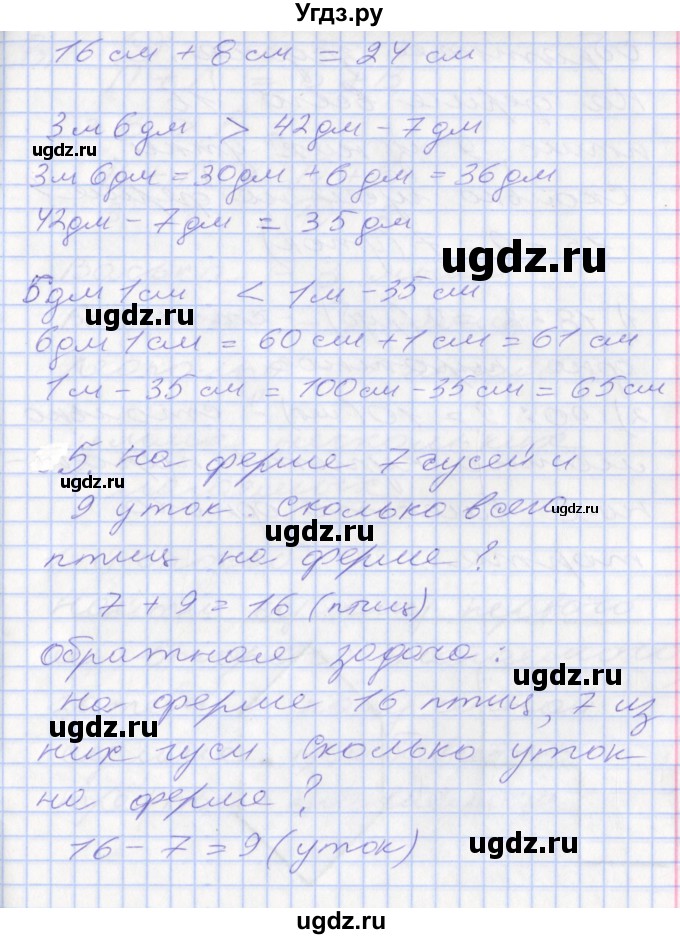 Угдз.ру
16 см + 8 см = 24 см
3м 6дм > 42дм - 7дм
ugdz.ru
3м 6дм = 30дм + 6дм = 36дм
42дм - 7дм = 35дм
ugdz.ru
5дм 1см < 1м - 35см
ugdz.ru
6дм 1см = 60см + 1см = 61см
1м - 35см = 100см - 35см = 65см
5. На ферме 7 гусей и
ugdz.ru
9 уток. Сколько всего
ugdz.ru
ugdz.ru
птиц на ферме?
7 + 9 = 16 (птиц)
Обратная задача:
ugdz.ru
На ферме 16 птиц, 7 из
ugdz.ru
них гуси. Сколько уток
на ферме?
ugdz.ru
16 - 7 = 9 (уток)
ugdz.ru
ugdz.ru